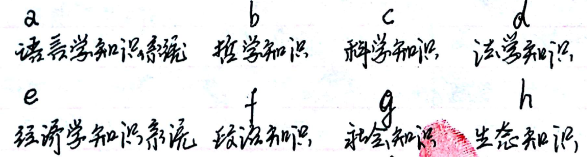 a b c d
语言学知识系统 哲学知识 科学知识 法学知识
e f g h
经济学知识系统 政治知识 社会知识 生态知识